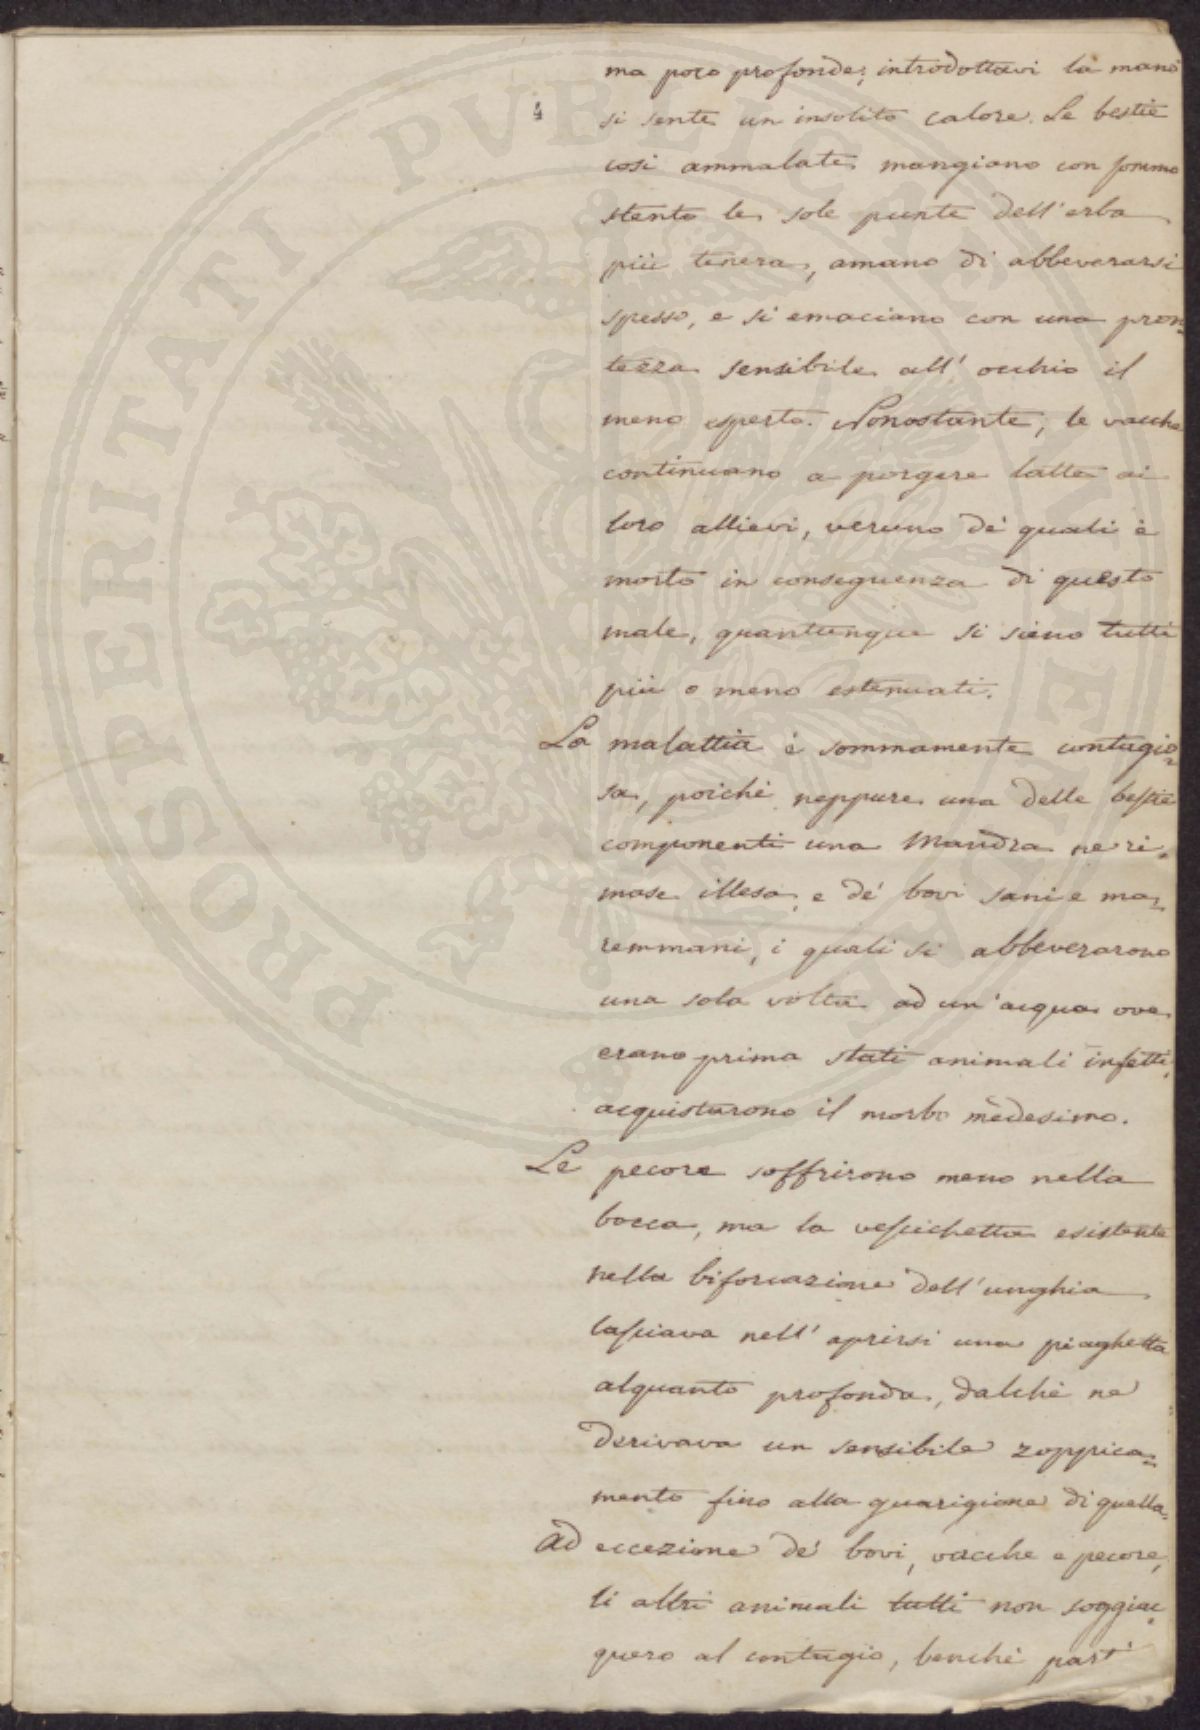 ma poco profonde; introdottavi la mano
4
si sente un insolito calore. Le bestie
così ammalate mangiano con sommo
stento le sole punte dell'erba
più tenera, amano di abbeverarsi
spesso, e si emaciano con una pron-
tezza sensibile all'occhio il
meno esperto. Nonostante, le vacche
continuano a porgere latte ai
loro allievi, veruno de' quali è
morto in conseguenza di questo
male, quantunque si sieno tutti
più o meno estenuati.
La malattia è sommamente contagio=
sa, poichè neppure una delle bestie
componenti una Mandra ne ri=
mase illesa, e de' bovi sani e ma=
remmani, i quali si abbeverarono
una sola volta ad un'acqua ove
erano prima stati animali infetti,
acquistarono il morbo medesimo.
Le pecore soffrirono meno nella
bocca, ma la vescichetta esistente
nella biforcazione dell'unghia
lasciava nell'aprirsi una piaghetta
alquanto profonda, dalchè ne
derivava un sensibile zoppica=
mento fino alla guarigione di quella.
Ad eccezione de' bovi, vacche e pecore,
li altri animali tutti non soggiac=
quero al contagio, benchè part
PROSPERITATI PUBLICAE AUGENDAE